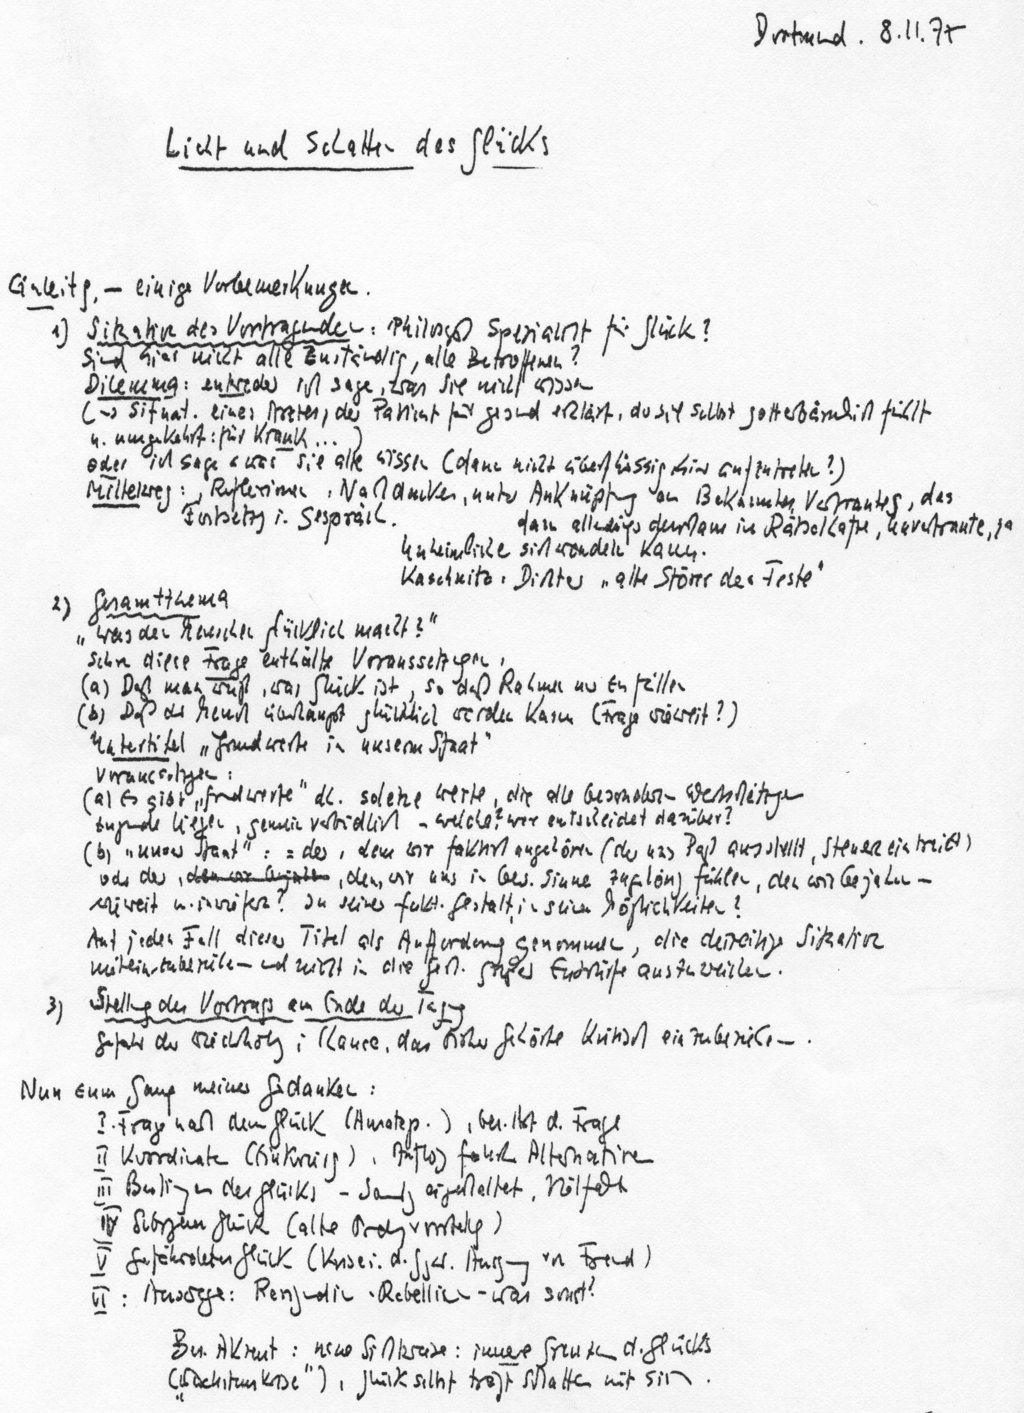 Dortmund. 8.11.77
Licht und Schatten des Glücks
Einleitg. – einige Vorbemerkungen.
1) Situation des Vortragenden: Philosoph Spezialist für Glück?
Sind hier nicht alle Zuständig, alle Betroffenen?
Dilemma: entweder ich sage, was Sie nicht wissen
(→ Situat. eines Arztes, der Patient für gesund erklärt, der sich selbst gotterbärmlich fühlt
u. umgekehrt: für Krank ...)
oder ich sage was Sie alle wissen (dann nicht überflüssig hier aufzutreten?)
Mittelweg: Reflexionen, Nachdenken, unter Anknüpfung an Bekanntes, Vertrautes, das
Fortsetzg i. Gespräch.
dann allerdings durchaus in Rätselhafte, Unvertraute, ja
Unheimliche sich wandeln kann.
Kaschnitz: Dichter „alte Störer der Feste"
2) Gesamtthema
„Was den Menschen glücklich macht?"
Schon diese Frage enthält Voraussetzungen,
(a) Daß man weiß, was Glück ist, so daß Rahmen nur zu füllen
(b) Daß der Mensch überhaupt glücklich werden kann (Frage wieweit?)
Untertitel „Grundwerte in unserm Staat"
Voraussetzgen:
(a) Es gibt „Grundwerte" dh. solche Werte, die alle besonderen
zugrunde liegen, gemein verbindlich – welche? wer entscheidet darüber?
(b) „unser Staat": = der, dem wir faktisch angehören (der uns Paß ausstellt, Steuer eintreibt)
oder der, dem wir uns in bes. Sinne zugehörig fühlen, den wir bejahen –
wieweit u. inwiefern? In seiner fakt. Gestalt, in seinen Möglichkeiten?
Auf jeden Fall dieser Titel als Aufforderung genommen, die derzeitige Situation
miteinzubeziehen – und nicht in die Entwürfe auszuweichen.
3) Stellung des Vortrags am Ende der Tagung
Gefahr der Wiederholg; Chance, das bisher Gehörte kritisch einzubeziehen –.
Nun zum Gang meiner Gedanken:
I. Frage nach dem Glück, d. Frage
II Koordinaten, falsche Alternative
III Bedingungen des Glücks – Vielfalt
IV Glück (alte Ordgvorstellg)
V Gefährdetes Glück
VI: Auswege: Resignation - Rebellion – was sonst?
Bes. Akzent: neue Sichtweise: innere Grenzen d. Glücks
(„Wachstumskrise"), Glück selbst trägt Schatten mit sich.